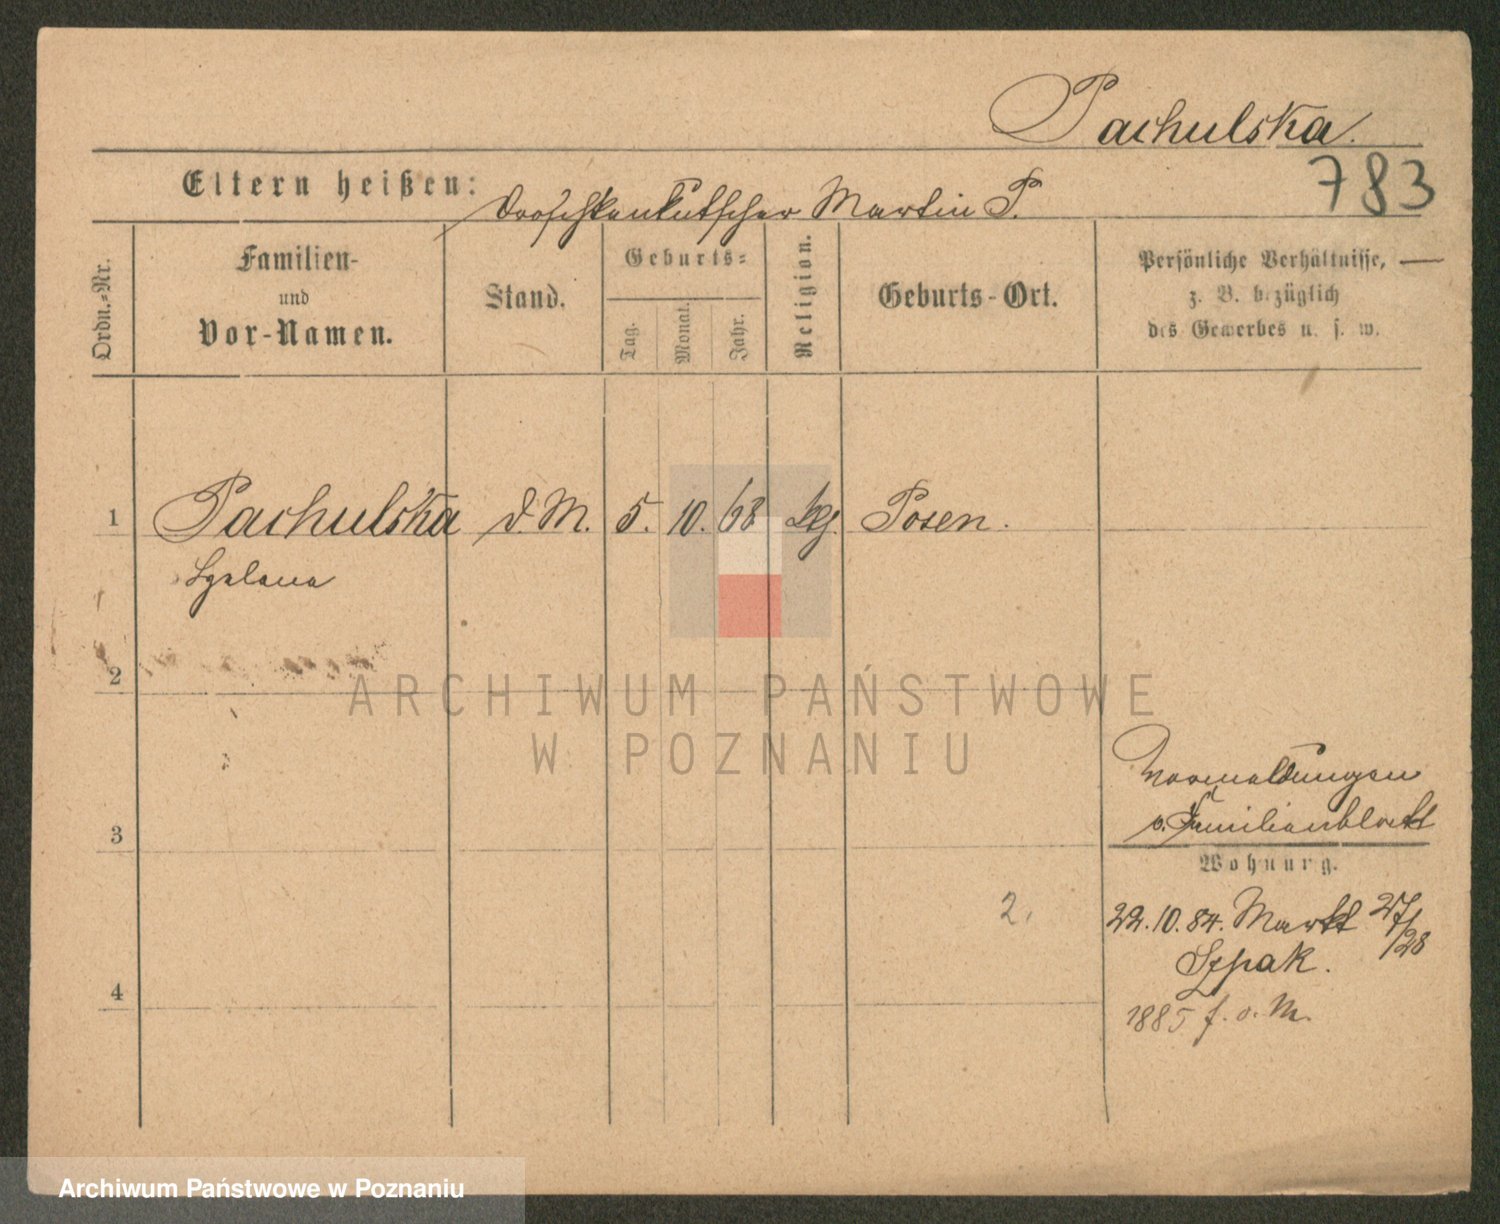 Pachulska.
783
Eltern heißen: Droschkenkutscher Martin P.
Ordn.-Nr.
Familien-
und
Vor-Namen.
Stand.
Geburts-
Tag.
Monat.
Jahr.
Religion.
Geburts-Ort.
Persönliche Verhältnisse, —
z. B. bezüglich
des Gewerbes u. s. w.
1 Pachulska d. M. 5. 10. 68 Posen.
2
3
4
Vormeldungen
s. Familienblatt
Wohnung.
2.
22. 10. 84. Markt 27/28
Szpak.
1885 f. o. M.
ARCHIWUM PAŃSTWOWE
W POZNANIU
Archiwum Państwowe w Poznaniu